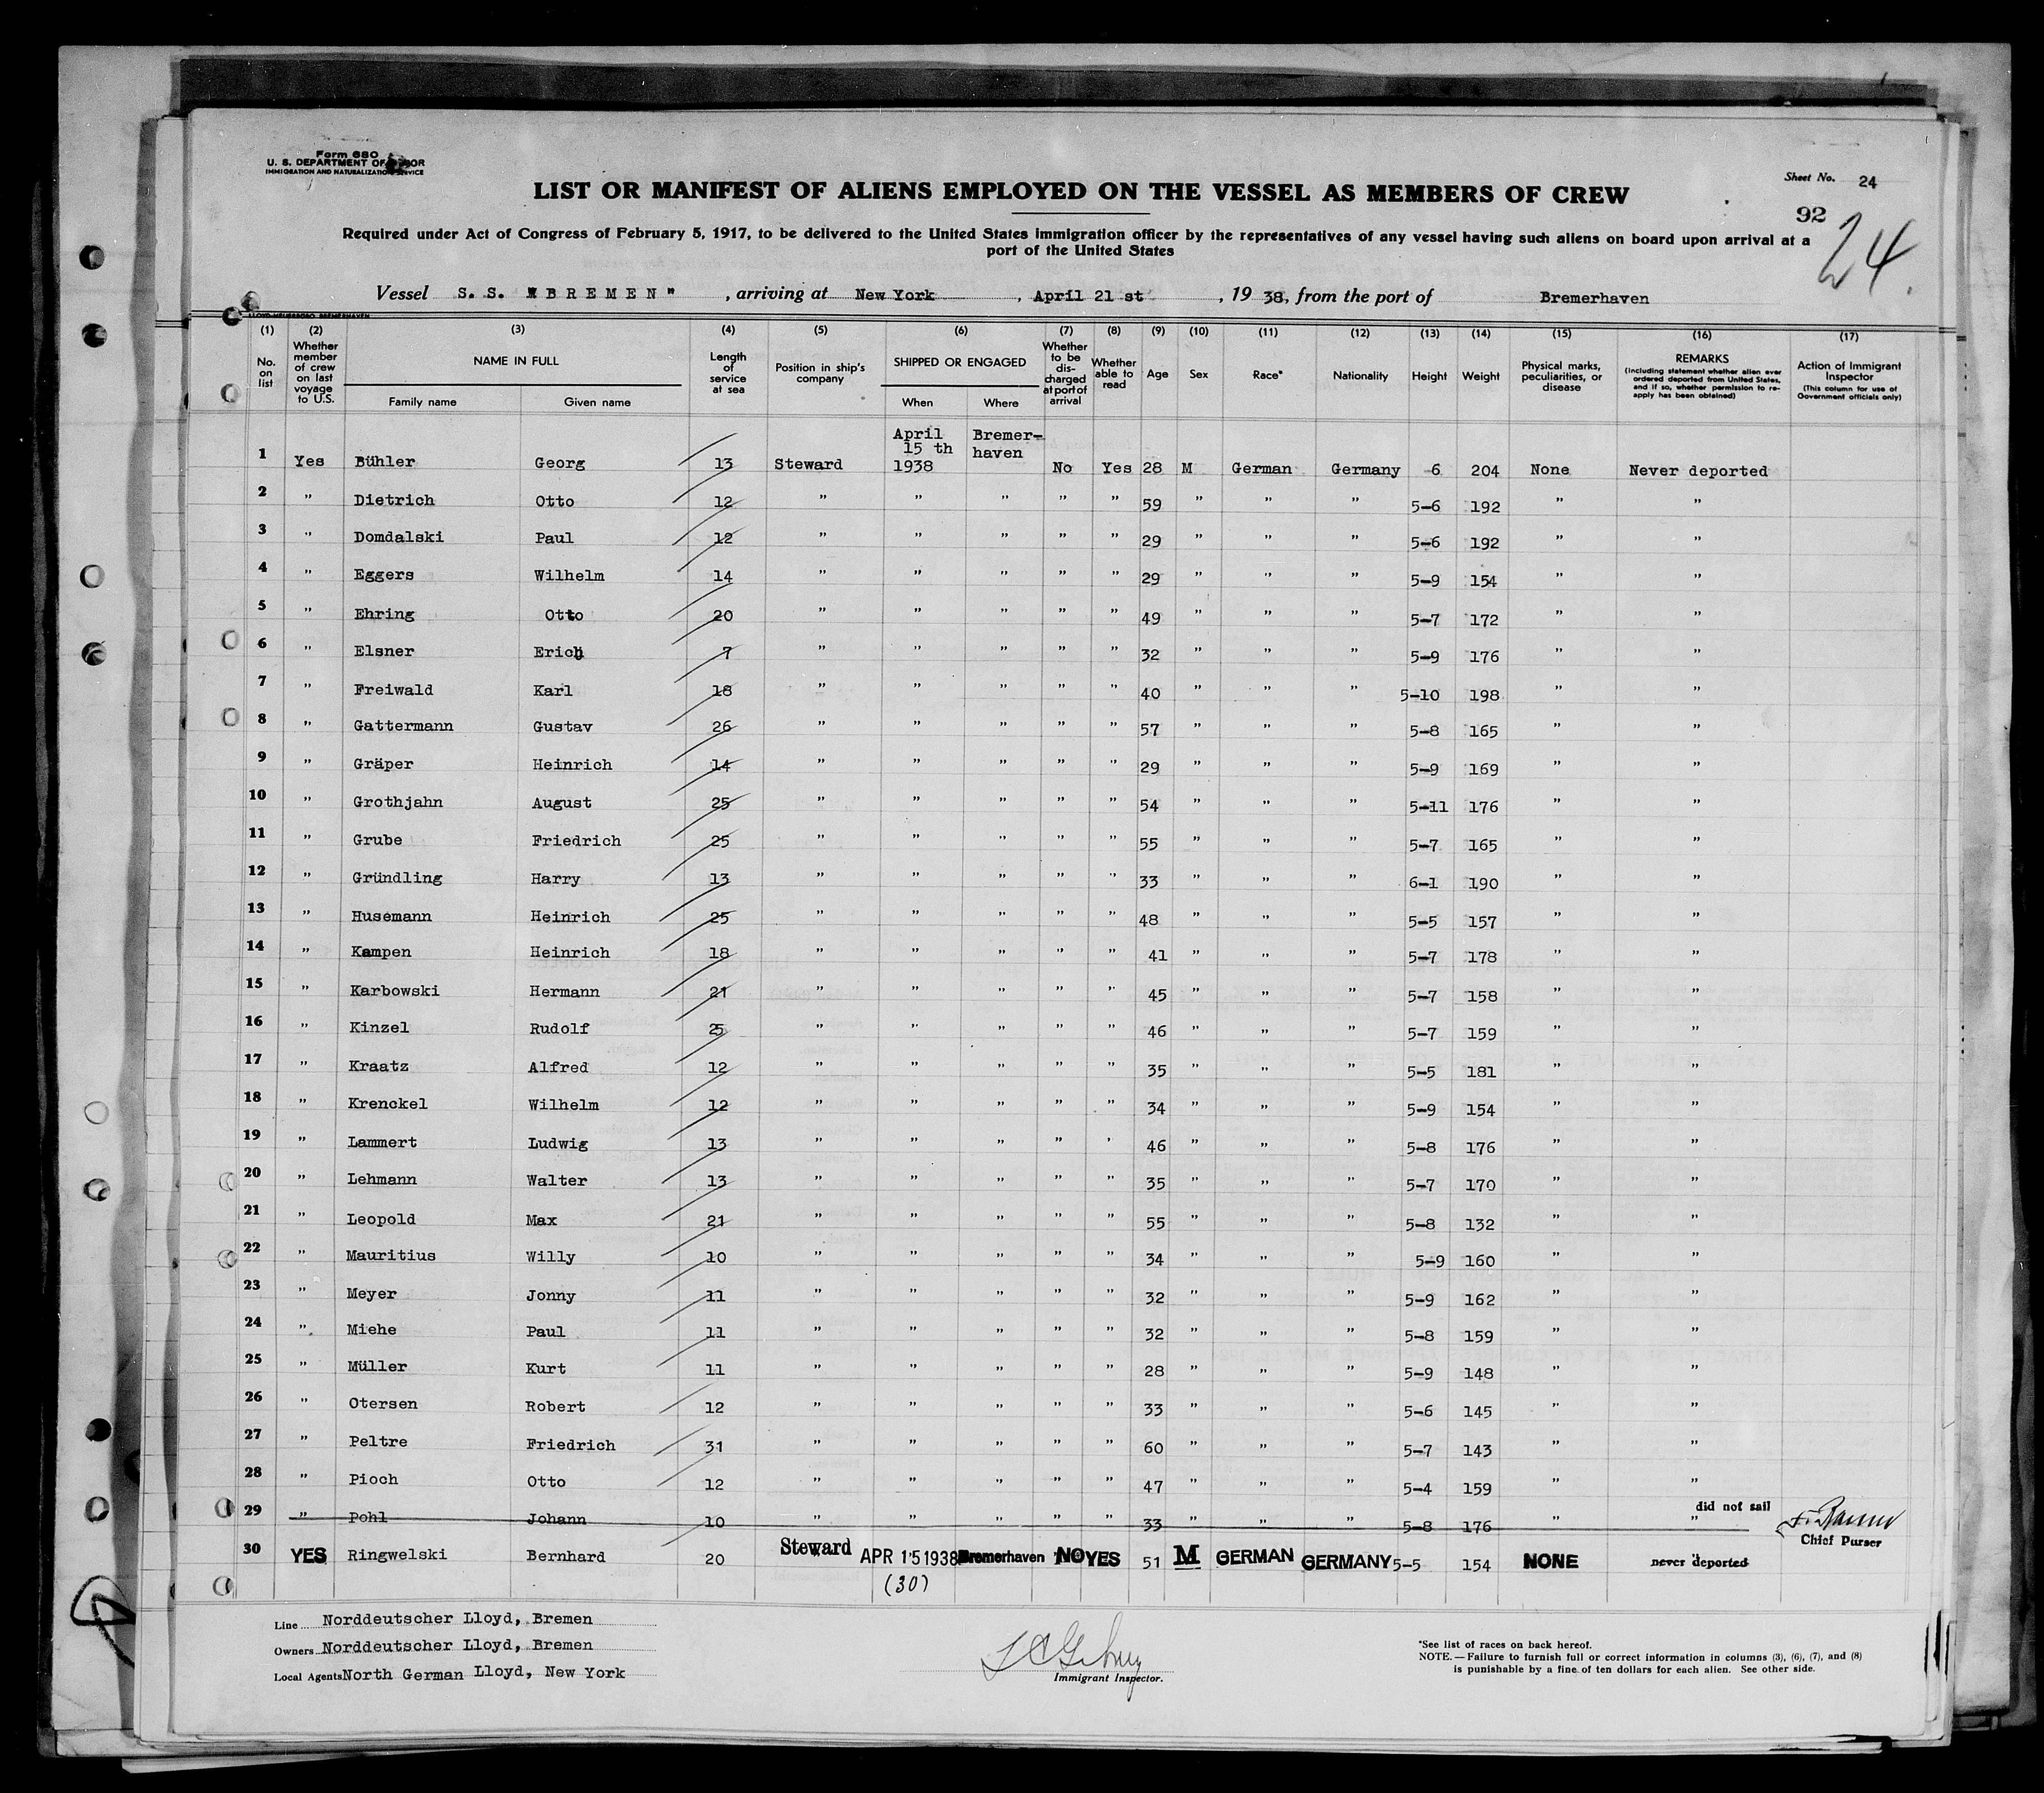 Form 680
U. S. DEPARTMENT OF LABOR
IMMIGRATION AND NATURALIZATION SERVICE
Sheet No. 24
LIST OR MANIFEST OF ALIENS EMPLOYED ON THE VESSEL AS MEMBERS OF CREW
92
24.
Required under Act of Congress of February 5, 1917, to be delivered to the United States immigration officer by the representatives of any vessel having such aliens on board upon arrival at a
port of the United States
Vessel S. S. "BREMEN", arriving at New York, April 21 st, 19 38, from the port of Bremerhaven
(1) (2) (3) (4) (5) (6) (7) (8) (9) (10) (11) (12) (13) (14) (15) (16) (17)
No. on list | Whether member of crew on last voyage to U.S. | NAME IN FULL Family name Given name | Length of service at sea | Position in ship's company | SHIPPED OR ENGAGED When Where | Whether to be discharged at port of arrival | Whether able to read | Age | Sex | Race* | Nationality | Height | Weight | Physical marks, peculiarities, or disease | REMARKS (Including statement whether alien ever ordered deported from United States, and if so, whether permission to reapply has been obtained) | Action of Immigrant Inspector (This column for use of Government officials only)
1 Yes Bühler Georg 13 Steward April 15 th 1938 Bremer-haven No Yes 28 M German Germany 6 204 None Never deported
2 " Dietrich Otto 12 " " " " " 59 " " " 5-6 192 " "
3 " Domdalski Paul 12 " " " " " 29 " " " 5-6 192 " "
4 " Eggers Wilhelm 14 " " " " " 29 " " " 5-9 154 " "
5 " Ehring Otto 20 " " " " " 49 " " " 5-7 172 " "
6 " Elsner Erich 7 " " " " " 32 " " " 5-9 176 " "
7 " Freiwald Karl 18 " " " " " 40 " " " 5-10 198 " "
8 " Gattermann Gustav 26 " " " " " 57 " " " 5-8 165 " "
9 " Gräper Heinrich 14 " " " " " 29 " " " 5-9 169 " "
10 " Grothjahn August 25 " " " " " 54 " " " 5-11 176 " "
11 " Grube Friedrich 25 " " " " " 55 " " " 5-7 165 " "
12 " Gründling Harry 13 " " " " " 33 " " " 6-1 190 " "
13 " Husemann Heinrich 25 " " " " " 48 " " " 5-5 157 " "
14 " Kampen Heinrich 18 " " " " " 41 " " " 5-7 178 " "
15 " Karbowski Hermann 21 " " " " " 45 " " " 5-7 158 " "
16 " Kinzel Rudolf 25 " " " " " 46 " " " 5-7 159 " "
17 " Kraatz Alfred 12 " " " " " 35 " " " 5-5 181 " "
18 " Krenckel Wilhelm 12 " " " " " 34 " " " 5-9 154 " "
19 " Lammert Ludwig 13 " " " " " 46 " " " 5-8 176 " "
20 " Lehmann Walter 13 " " " " " 35 " " " 5-7 170 " "
21 " Leopold Max 21 " " " " " 55 " " " 5-8 132 " "
22 " Mauritius Willy 10 " " " " " 34 " " " 5-9 160 " "
23 " Meyer Jonny 11 " " " " " 32 " " " 5-9 162 " "
24 " Miehe Paul 11 " " " " " 32 " " " 5-8 159 " "
25 " Müller Kurt 11 " " " " " 28 " " " 5-9 148 " "
26 " Otersen Robert 12 " " " " " 33 " " " 5-6 145 " "
27 " Peltre Friedrich 31 " " " " " 60 " " " 5-7 143 " "
28 " Pioch Otto 12 " " " " " 47 " " " 5-4 159 " "
29 " Pohl Johann 10 " " " " " 33 " " " 5-8 176 " " did not sail
Chief Purser
30 YES Ringwelski Bernhard 20 Steward APR 15 1938 Bremerhaven NO YES 51 M GERMAN GERMANY 5-5 154 NONE never deported
(30)
Line Norddeutscher Lloyd, Bremen
Owners Norddeutscher Lloyd, Bremen
Local Agents North German Lloyd, New York
Immigrant Inspector.
*See list of races on back hereof.
NOTE.—Failure to furnish full or correct information in columns (3), (6), (7), and (8)
is punishable by a fine of ten dollars for each alien. See other side.